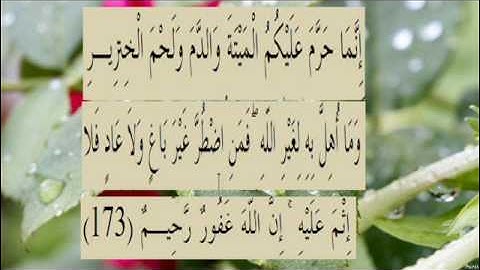 إِنَّمَا حَرَّمَ عَلَيْكُمُ الْمَيْتَةَ وَالدَّمَ وَلَحْمَ الْخِنزِيرِ
وَمَا أُهِلَّ بِهِ لِغَيْرِ اللَّهِ ۖ فَمَنِ اضْطُرَّ غَيْرَ بَاغٍ وَلَا عَادٍ فَلَا
إِثْمَ عَلَيْهِ ۚ إِنَّ اللَّهَ غَفُورٌ رَّحِيمٌ (173)